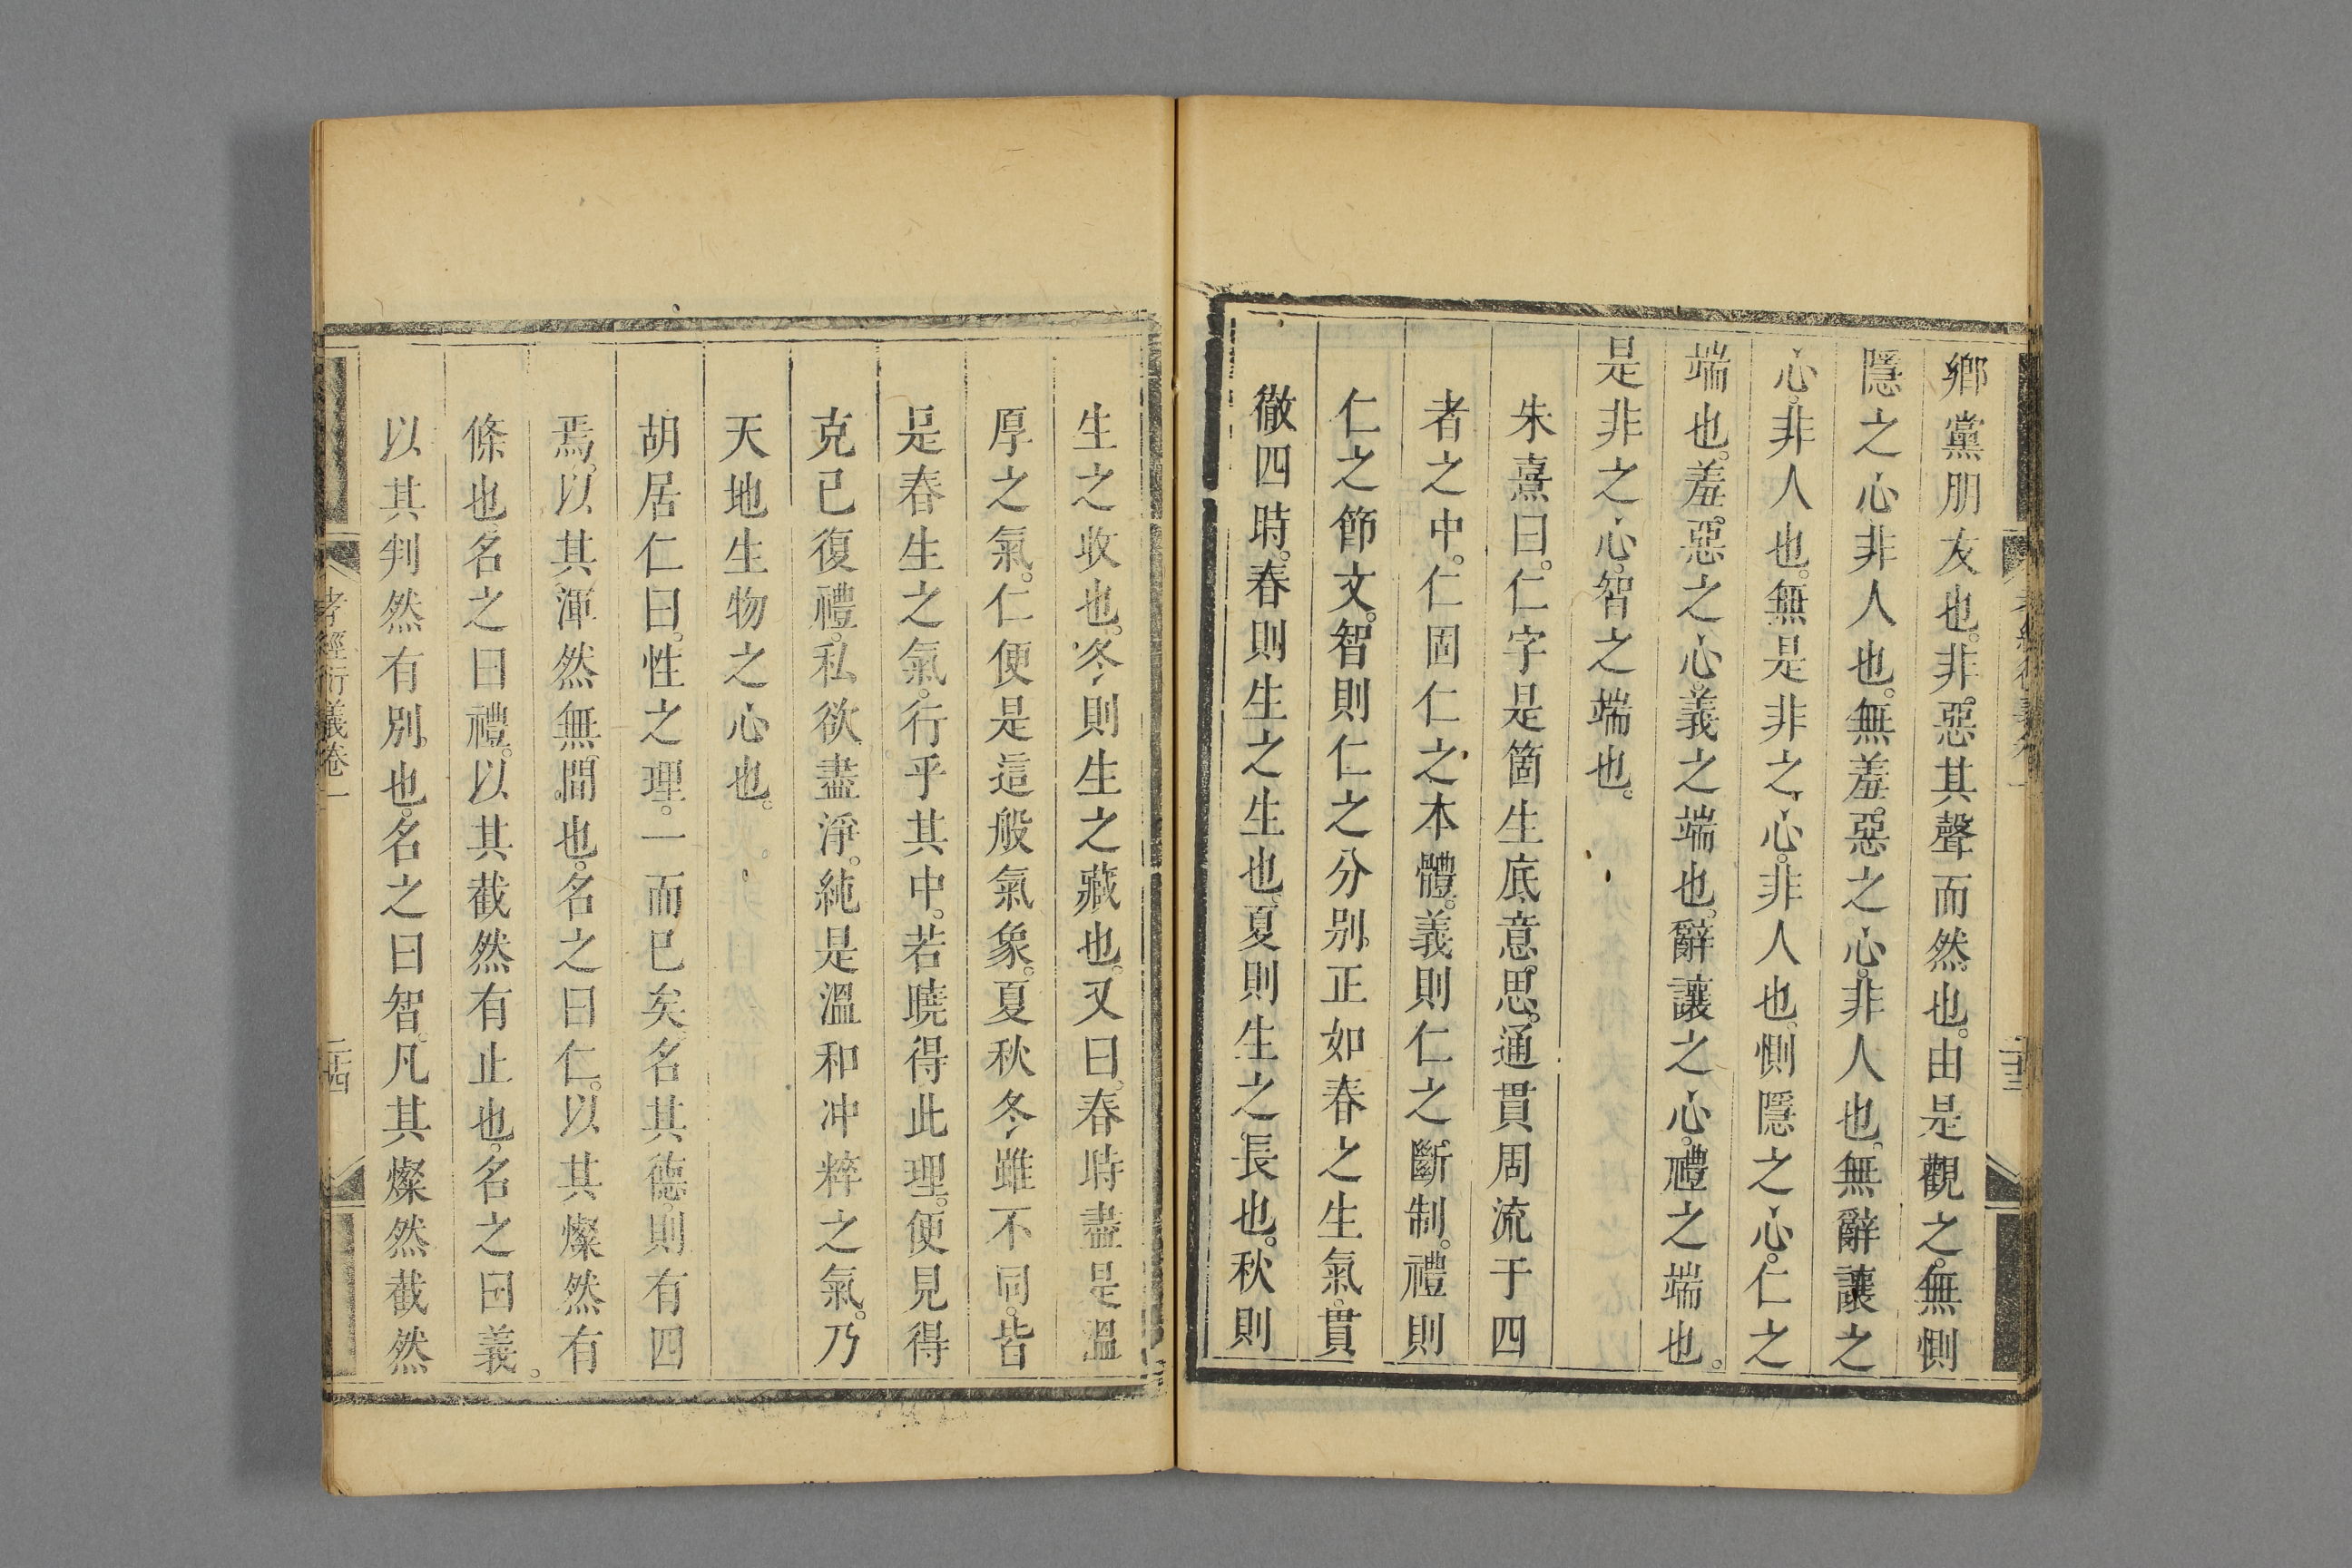 鄉黨朋友也。非惡其聲而然也。由是觀之。無惻
隱之心。非人也。無羞惡之心。非人也。無辭讓之
心。非人也。無是非之心。非人也。惻隱之心。仁之
端也。羞惡之心。義之端也。辭讓之心。禮之端也。
是非之心。智之端也。
朱熹曰。仁字是箇生底意思。通貫周流于四
者之中。仁固仁之本體。義則仁之斷制。禮則
仁之節文。智則仁之分別。正如春之生氣。貫
徹四時。春則生之生也。夏則生之長也。秋則
生之收也。冬則生之藏也。又曰。春時盡是溫
厚之氣。仁便是這般氣象。夏秋冬雖不同。皆
是春生之氣。行乎其中。若曉得此理。便見得
克已復禮。私欲盡淨。純是溫和冲粹之氣。乃
天地生物之心也。
胡居仁曰。性之理。一而已矣。名其德。則有四
焉。以其渾然無間也。名之曰仁。以其燦然有
條也。名之曰禮。以其截然有止也。名之曰義。
以其判然有別也。名之曰智。凡其燦然截然
孝經衍義卷一
二十四